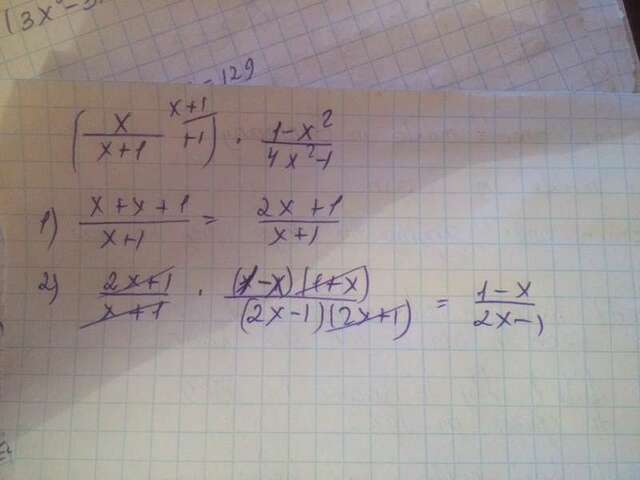 (3x²-3
=129
(x/(x+1) + 1) x+1 · (1-x²)/(4x²-1)
1) (x+x+1)/(x+1) = (2x+1)/(x+1)
2) (2x+1)/(x+1) · ((1-x)(1+x))/((2x-1)(2x+1)) = (1-x)/(2x-1)